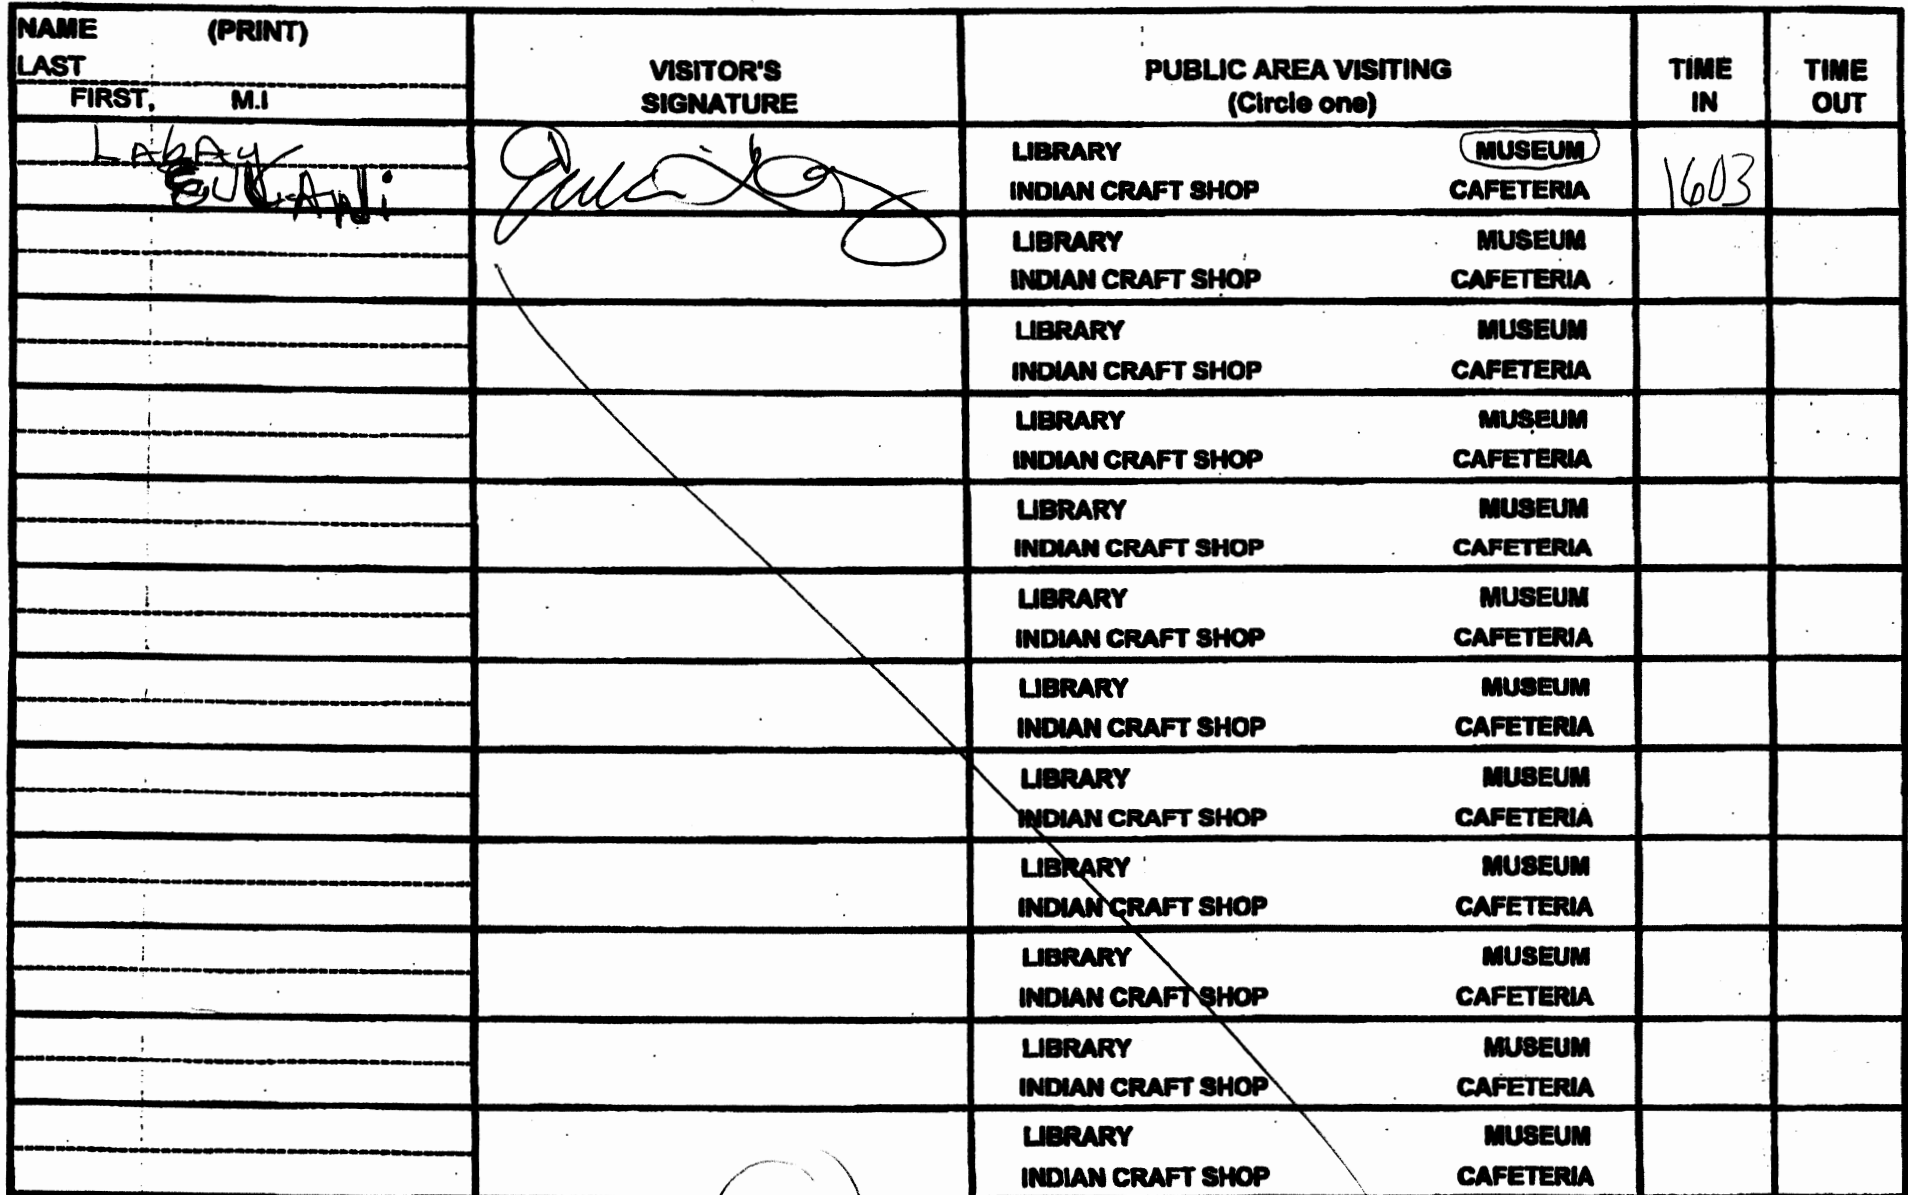 NAME (PRINT)
LAST
FIRST, M.I
VISITOR'S
SIGNATURE
PUBLIC AREA VISITING
(Circle one)
TIME
IN
TIME
OUT
LAbAy
LIBRARY MUSEUM
INDIAN CRAFT SHOP CAFETERIA
1603
LIBRARY MUSEUM
INDIAN CRAFT SHOP CAFETERIA
LIBRARY MUSEUM
INDIAN CRAFT SHOP CAFETERIA
LIBRARY MUSEUM
INDIAN CRAFT SHOP CAFETERIA
LIBRARY MUSEUM
INDIAN CRAFT SHOP CAFETERIA
LIBRARY MUSEUM
INDIAN CRAFT SHOP CAFETERIA
LIBRARY MUSEUM
INDIAN CRAFT SHOP CAFETERIA
LIBRARY MUSEUM
INDIAN CRAFT SHOP CAFETERIA
LIBRARY MUSEUM
INDIAN CRAFT SHOP CAFETERIA
LIBRARY MUSEUM
INDIAN CRAFT SHOP CAFETERIA
LIBRARY MUSEUM
INDIAN CRAFT SHOP CAFETERIA
LIBRARY MUSEUM
INDIAN CRAFT SHOP CAFETERIA